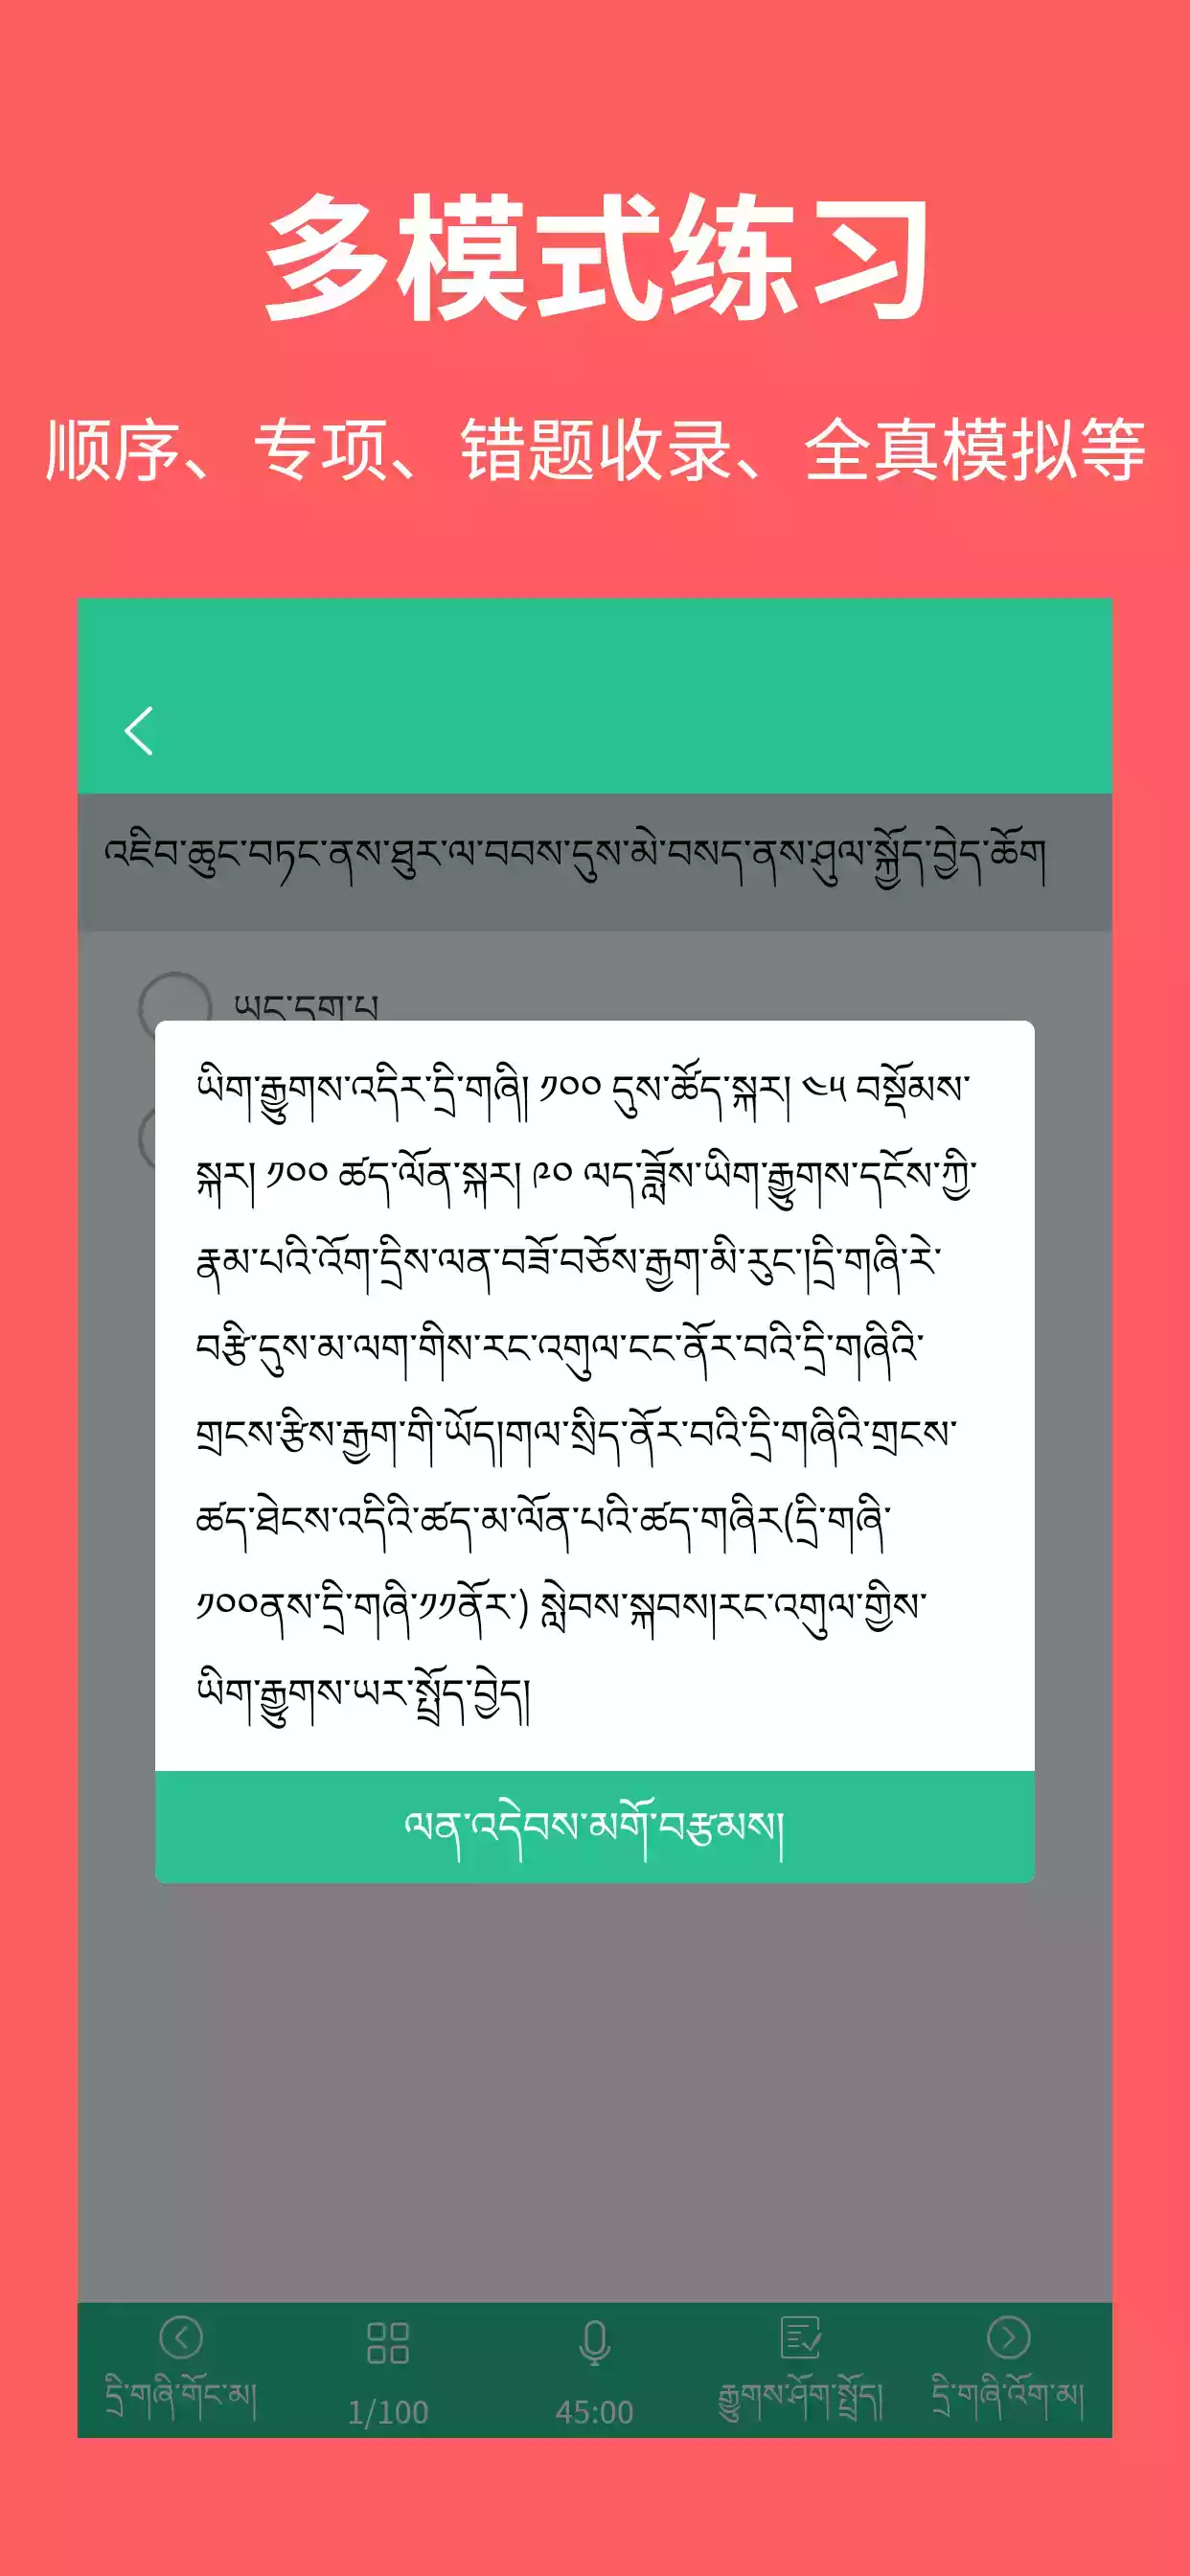 多模式练习
顺序、专项、错题收录、全真模拟等
འཇིབ་ཆུང་བཏང་ནས་ཐུར་ལ་བབས་དུས་མེ་བསད་ནས་ཤུལ་སྐྱོད་བྱེད་ཆོག
ཡང་དག་པ
ཡིག་རྒྱུགས་འདིར་དྲི་གཞི། ༡༠༠ དུས་ཚོད་སྐར། ༤༥ བསྡོམས་
སྐར། ༡༠༠ ཚད་ལོན་སྐར། ༩༠ ལད་ཟློས་ཡིག་རྒྱུགས་དངོས་ཀྱི་
རྣམ་པའི་འོག་དྲིས་ལན་བཟོ་བཅོས་རྒྱག་མི་རུང་།དྲི་གཞི་རེ་
བརྩི་དུས་མ་ལག་གིས་རང་འགུལ་ངང་ནོར་བའི་དྲི་གཞིའི་
གྲངས་རྩིས་རྒྱག་གི་ཡོད།གལ་སྲིད་ནོར་བའི་དྲི་གཞིའི་གྲངས་
ཚད་ཐེངས་འདིའི་ཚད་མ་ལོན་པའི་ཚད་གཞིར(དྲི་གཞི་
༡༠༠ནས་དྲི་གཞི་༡༡ནོར་) སླེབས་སྐབས།རང་འགུལ་གྱིས་
ཡིག་རྒྱུགས་ཡར་སྤྲོད་བྱེད།
ལན་འདེབས་མགོ་བརྩམས།
དྲི་གཞི་གོང་མ།
1/100
45:00
རྒྱུགས་ཤོག་སྤྲོད།
དྲི་གཞི་འོག་མ།